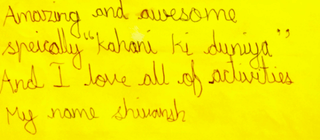 Amazing and awesome
speically "kahani ki duniya"
And I love all of activities
My name shivansh